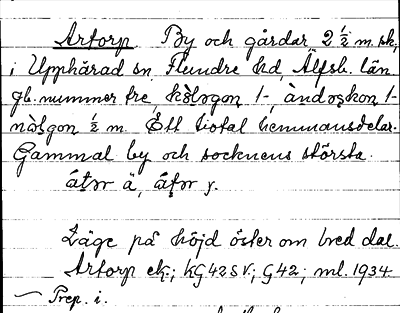 Artorp. By och gårdar 2 ½ m. sk,
i Upphärad sn, Flundre hd, Älfsb. län
gb. nummer tre, kölogon 1-, àndoskon 1-
nòlgon ½ m. Ett tiotal hemmansdelar.
Gammal by och socknens största.
Läge på höjd öster om bred dal.
Artorp ek; KG42SV; G42; ml. 1934
Prep. i.